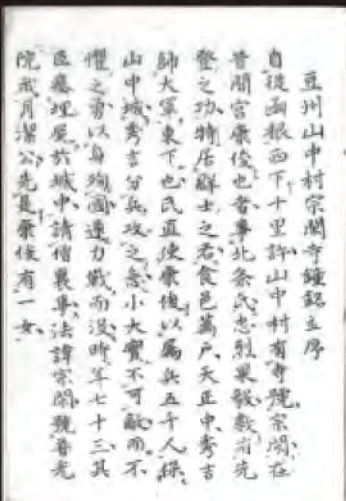 豆州山中村宗閑寺鐘銘並序
自從函根西下十里許山中村有寺號宗閑在
昔間宮康俊也者事北条氏忠烈果毅數有先
登之功特居群士之右食邑萬戶天正中秀吉
帥大軍東下也氏直使康俊以屬兵五千人保
山中城秀吉分兵攻之急小大實不可敵而不
懼之勇以身殉國連力戰而没時年七十三其
臣窓埋屍於城中請僧襄事法諱宗閑號普光
院武月潔公先是康俊有一女